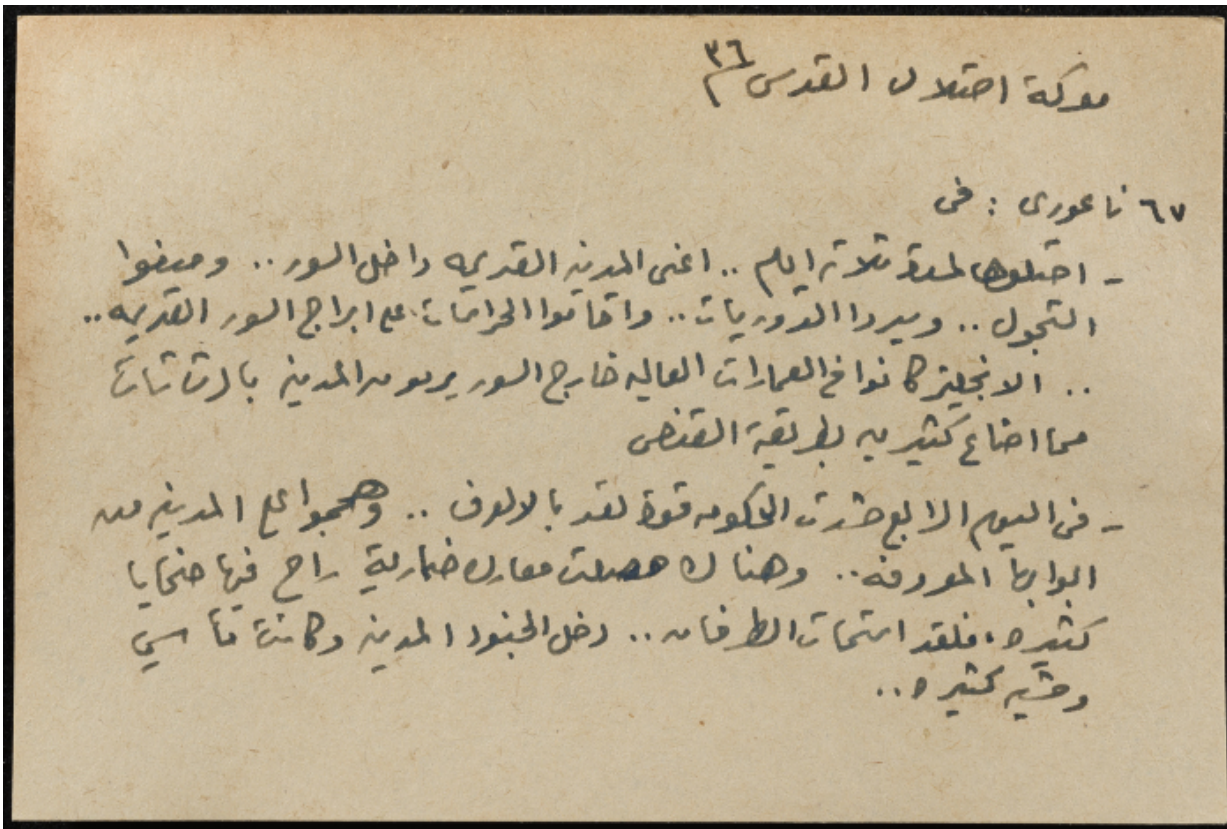 معركة احتلال القدس ٣٦م
٦٧ ناعورى : فى
- احتلوها لمدة ثلاثة ايام .. اعنى المدينه القديمه داخل السور .. ومنعوا
التجول .. وسيروا الدوريات .. واقاموا الحراسات على ابراج السور القديمه ..
.. الانجليز كانوا في العمارات العاليه خارج السور يرمون المدينه بالرشاشات
مما اضاع كثيرين بطريقة القنص
- فى اليوم الرابع حشدت الحكومه قوة تقدر بالالوف .. وهجموا على المدينه من
ابوابها المعروفه .. وهناك حصلت معارك ضارية راح فيها ضحايا
كثيره، فلقد استمات الطرفان .. دخل الجنود المدينه وكانت مآسي
وحشيه كثيره ..